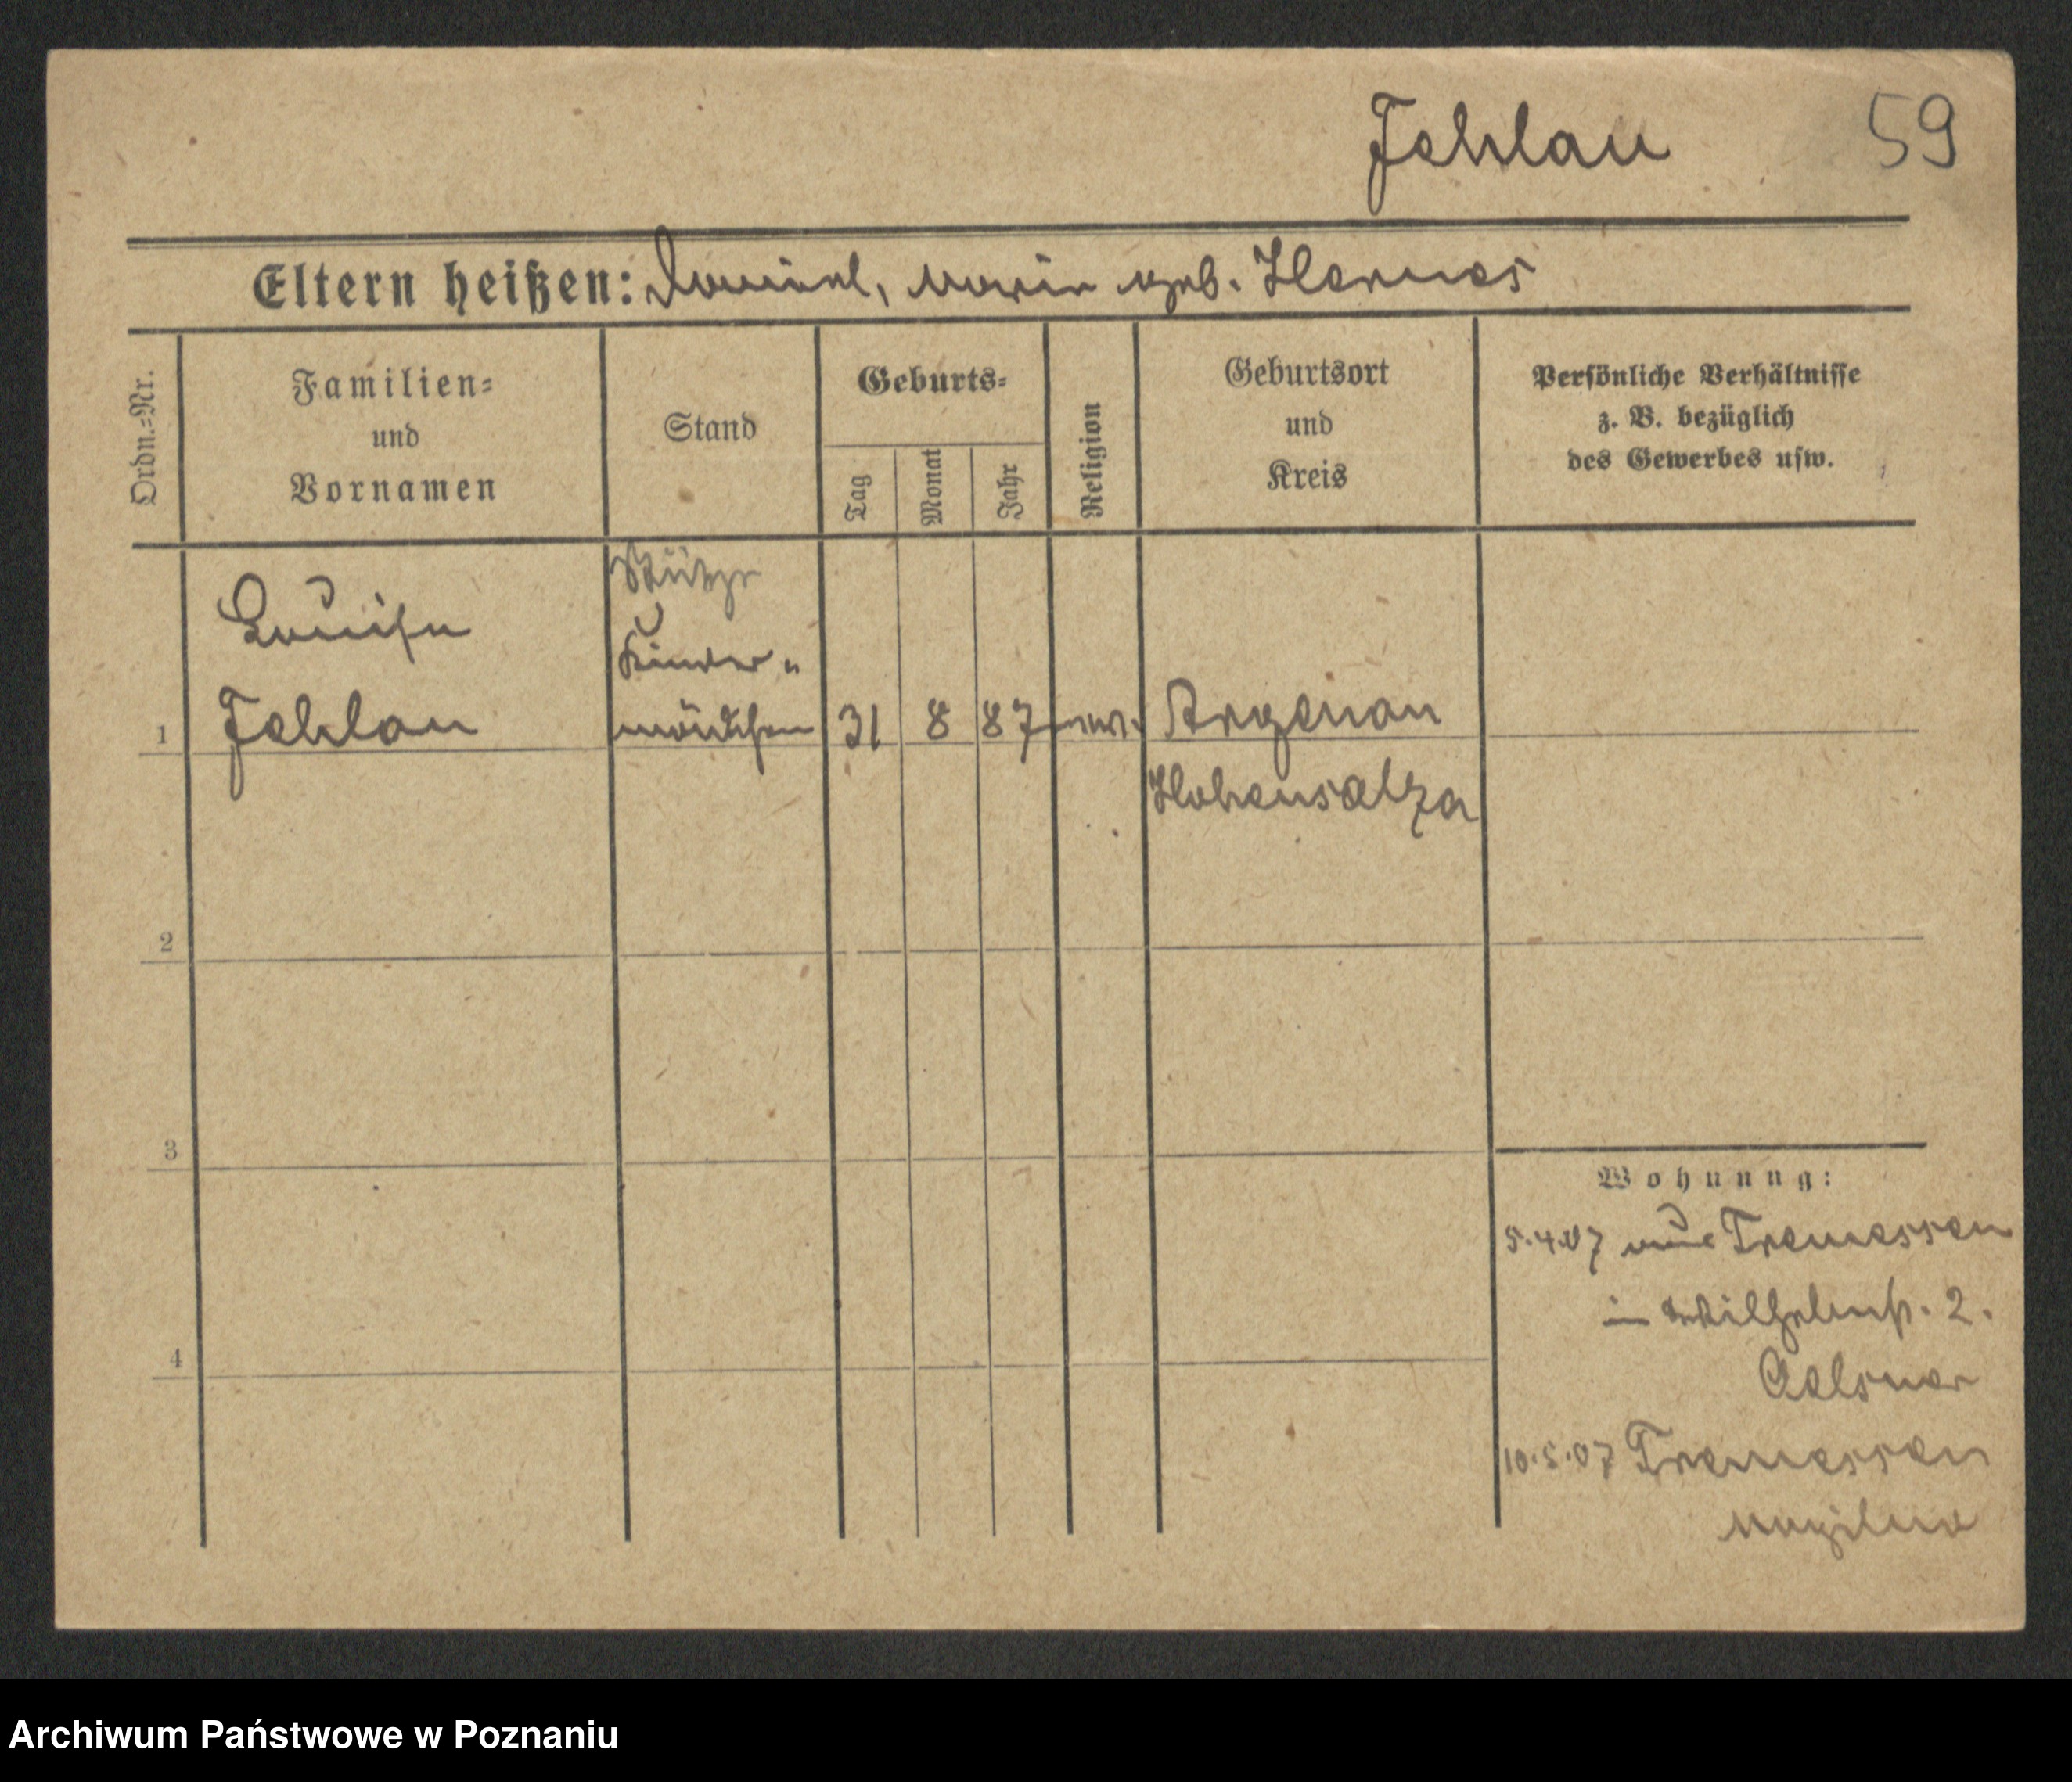 Fehlau 59
Eltern heißen: Daniel, Marie geb. Hermes
Ordn.-Nr.
Familien-
und
Vornamen
Stand
Geburts-
Tag
Monat
Jahr
Religion
Geburtsort
und
Kreis
Persönliche Verhältnisse
z. B. bezüglich
des Gewerbes usw.
Stütze
Louise
Kinder-
1 Fehlau mädchen 31 8 87 ev. Argenau
Hohensalza
2
3
Wohnung:
5.4.07 aus Tremessen
in Wilhelmstr. 2.
4
Oelsner
10.5.07 Tremessen
Mogilno
Archiwum Państwowe w Poznaniu